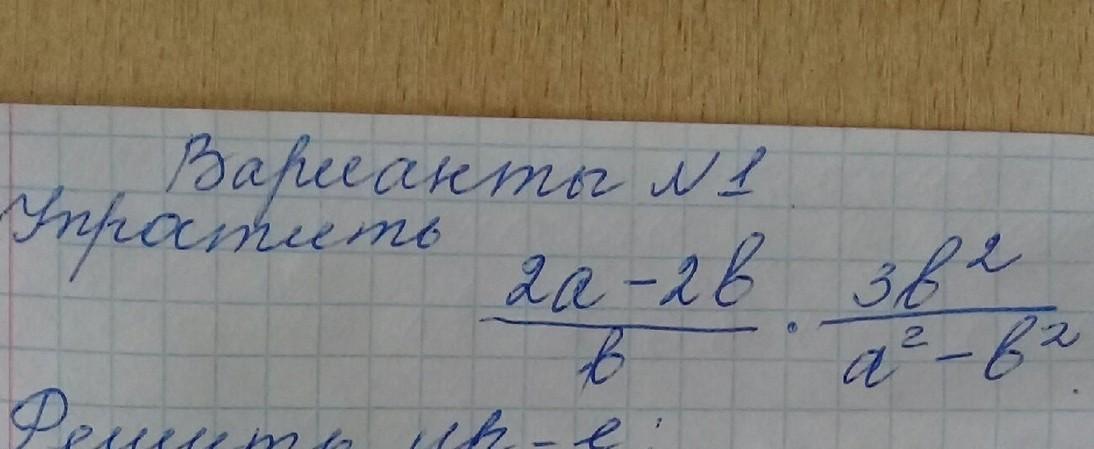 Варианты №1
Упростить
2a-2b/b · 3b²/a²-b²
Решить ур-е: